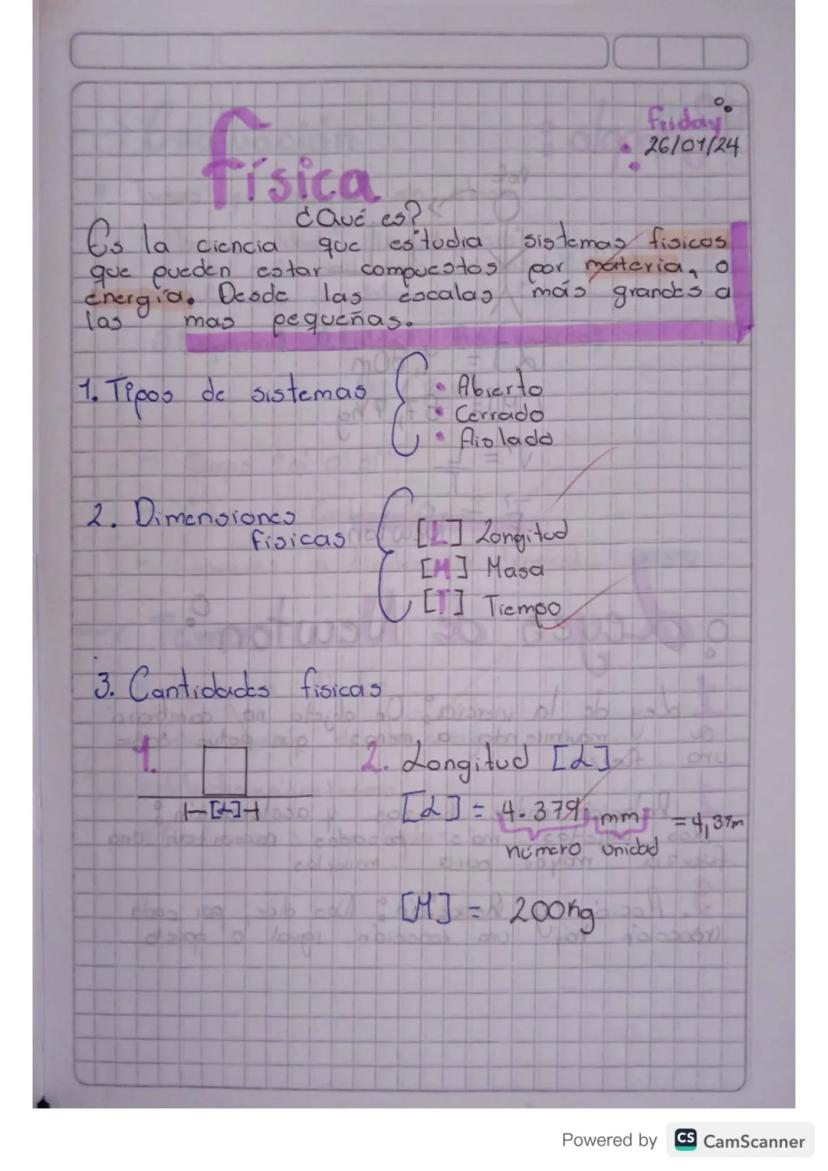 friday
26/01/24
física
¿Qué es?
Es la ciencia que estudia sistemas fisicos
que pueden estar compuestos por materia, o
energía. Desde las escalas más grandes a
las mas pequeñas.
1. Tipos de sistemas
• Abierto
• Cerrado
• Aislado
2. Dimensiones
fisicas
[L] Longitud
[M] Masa
[T] Tiempo
3. Cantidades fisicas
1.
⊢[L]⊣
2. Longitud [L]
[L] = 4.379 mm = 4,37m
número unidad
[M] = 200kg
Powered by CS CamScanner